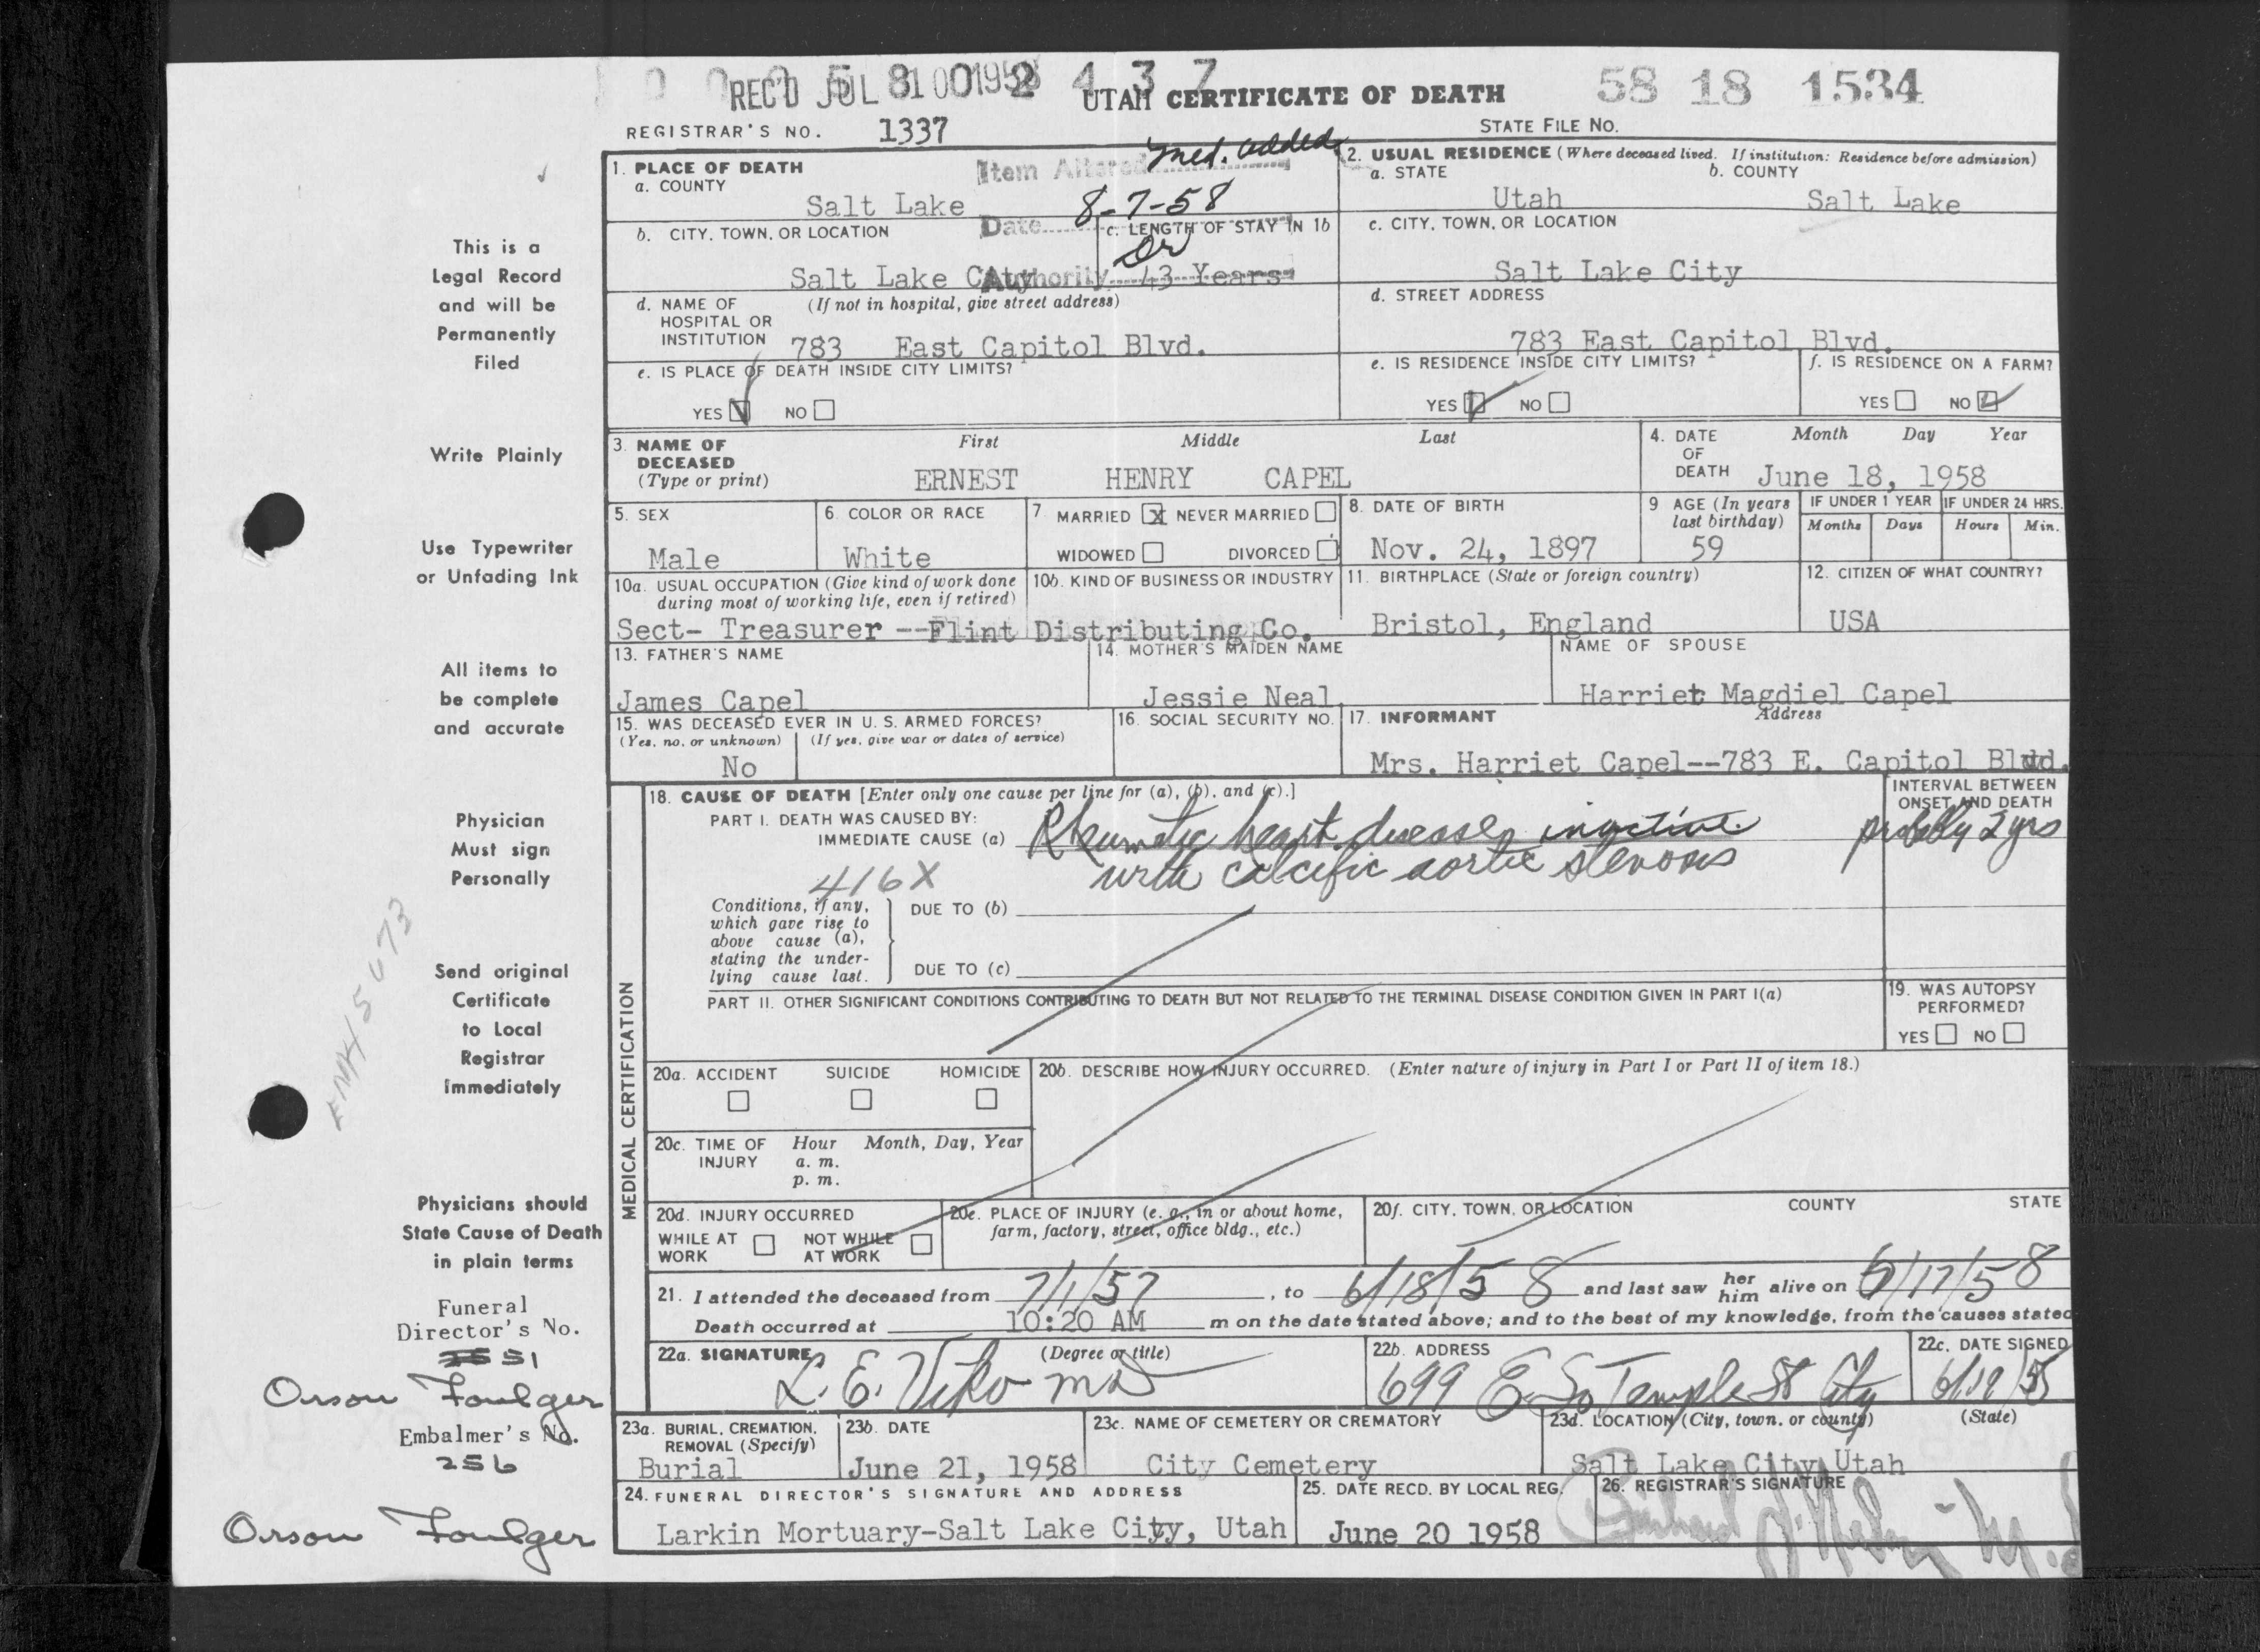 REC'D JUL 31 1958
0 0 0 5 8 0 0 2 4 3 7
UTAH CERTIFICATE OF DEATH
58 18 1534
REGISTRAR'S NO. 1337
STATE FILE NO.
1. PLACE OF DEATH
a. COUNTY
Salt Lake
Item Altered med. added
Date 8-7-58
Authority Dr
2. USUAL RESIDENCE (Where deceased lived. If institution: Residence before admission)
a. STATE b. COUNTY
Utah Salt Lake
b. CITY, TOWN, OR LOCATION
Salt Lake City
c. LENGTH OF STAY IN 1b
43 Years
c. CITY, TOWN, OR LOCATION
Salt Lake City
d. NAME OF HOSPITAL OR INSTITUTION (If not in hospital, give street address)
783 East Capitol Blvd.
d. STREET ADDRESS
783 East Capitol Blvd.
e. IS PLACE OF DEATH INSIDE CITY LIMITS?
YES NO
e. IS RESIDENCE INSIDE CITY LIMITS?
YES NO
f. IS RESIDENCE ON A FARM?
YES NO
3. NAME OF DECEASED (Type or print)
First Middle Last
ERNEST HENRY CAPEL
4. DATE OF DEATH
Month Day Year
June 18, 1958
5. SEX
Male
6. COLOR OR RACE
White
7. MARRIED X NEVER MARRIED
WIDOWED DIVORCED
8. DATE OF BIRTH
Nov. 24, 1897
9 AGE (In years last birthday)
59
IF UNDER 1 YEAR
Months Days
IF UNDER 24 HRS.
Hours Min.
10a. USUAL OCCUPATION (Give kind of work done during most of working life, even if retired)
10b. KIND OF BUSINESS OR INDUSTRY
Sect- Treasurer --Flint Distributing Co.
11. BIRTHPLACE (State or foreign country)
Bristol, England
12. CITIZEN OF WHAT COUNTRY?
USA
13. FATHER'S NAME
James Capel
14. MOTHER'S MAIDEN NAME
Jessie Neal
NAME OF SPOUSE
Harriet Magdiel Capel
15. WAS DECEASED EVER IN U. S. ARMED FORCES?
(Yes, no, or unknown) (If yes, give war or dates of service)
No
16. SOCIAL SECURITY NO.
17. INFORMANT Address
Mrs. Harriet Capel--783 E. Capitol Blvd.
MEDICAL CERTIFICATION
18. CAUSE OF DEATH [Enter only one cause per line for (a), (b), and (c).]
PART I. DEATH WAS CAUSED BY:
IMMEDIATE CAUSE (a) Rheumatic heart disease, inactive
with calcific aortic stenosis
INTERVAL BETWEEN ONSET AND DEATH
probably 2 yrs
416X
Conditions, if any, which gave rise to above cause (a), stating the underlying cause last.
DUE TO (b)
DUE TO (c)
PART II. OTHER SIGNIFICANT CONDITIONS CONTRIBUTING TO DEATH BUT NOT RELATED TO THE TERMINAL DISEASE CONDITION GIVEN IN PART I(a)
19. WAS AUTOPSY PERFORMED?
YES NO
20a. ACCIDENT SUICIDE HOMICIDE
20b. DESCRIBE HOW INJURY OCCURRED. (Enter nature of injury in Part I or Part II of item 18.)
20c. TIME OF INJURY
Hour Month, Day, Year
a. m.
p. m.
20d. INJURY OCCURRED
WHILE AT WORK NOT WHILE AT WORK
20e. PLACE OF INJURY (e. g., in or about home, farm, factory, street, office bldg., etc.)
20f. CITY, TOWN, OR LOCATION COUNTY STATE
21. I attended the deceased from 7/1/57, to 6/18/58 and last saw her him alive on 6/17/58
Death occurred at 10:20 AM m on the date stated above; and to the best of my knowledge, from the causes stated
22a. SIGNATURE (Degree or title)
L. E. Viko MD
22b. ADDRESS
699 E. So Temple St City
22c. DATE SIGNED
23a. BURIAL, CREMATION, REMOVAL (Specify)
Burial
23b. DATE
June 21, 1958
23c. NAME OF CEMETERY OR CREMATORY
City Cemetery
23d. LOCATION (City, town, or county) (State)
Salt Lake City Utah
24. FUNERAL DIRECTOR'S SIGNATURE AND ADDRESS
Larkin Mortuary-Salt Lake City, Utah
25. DATE RECD. BY LOCAL REG.
June 20 1958
26. REGISTRAR'S SIGNATURE
This is a
Legal Record
and will be
Permanently
Filed
Write Plainly
Use Typewriter
or Unfading Ink
All items to
be complete
and accurate
Physician
Must sign
Personally
Send original
Certificate
to Local
Registrar
Immediately
Physicians should
State Cause of Death
in plain terms
Funeral
Director's No.
51
Orson Foulger
Embalmer's No.
256
Orson Foulger